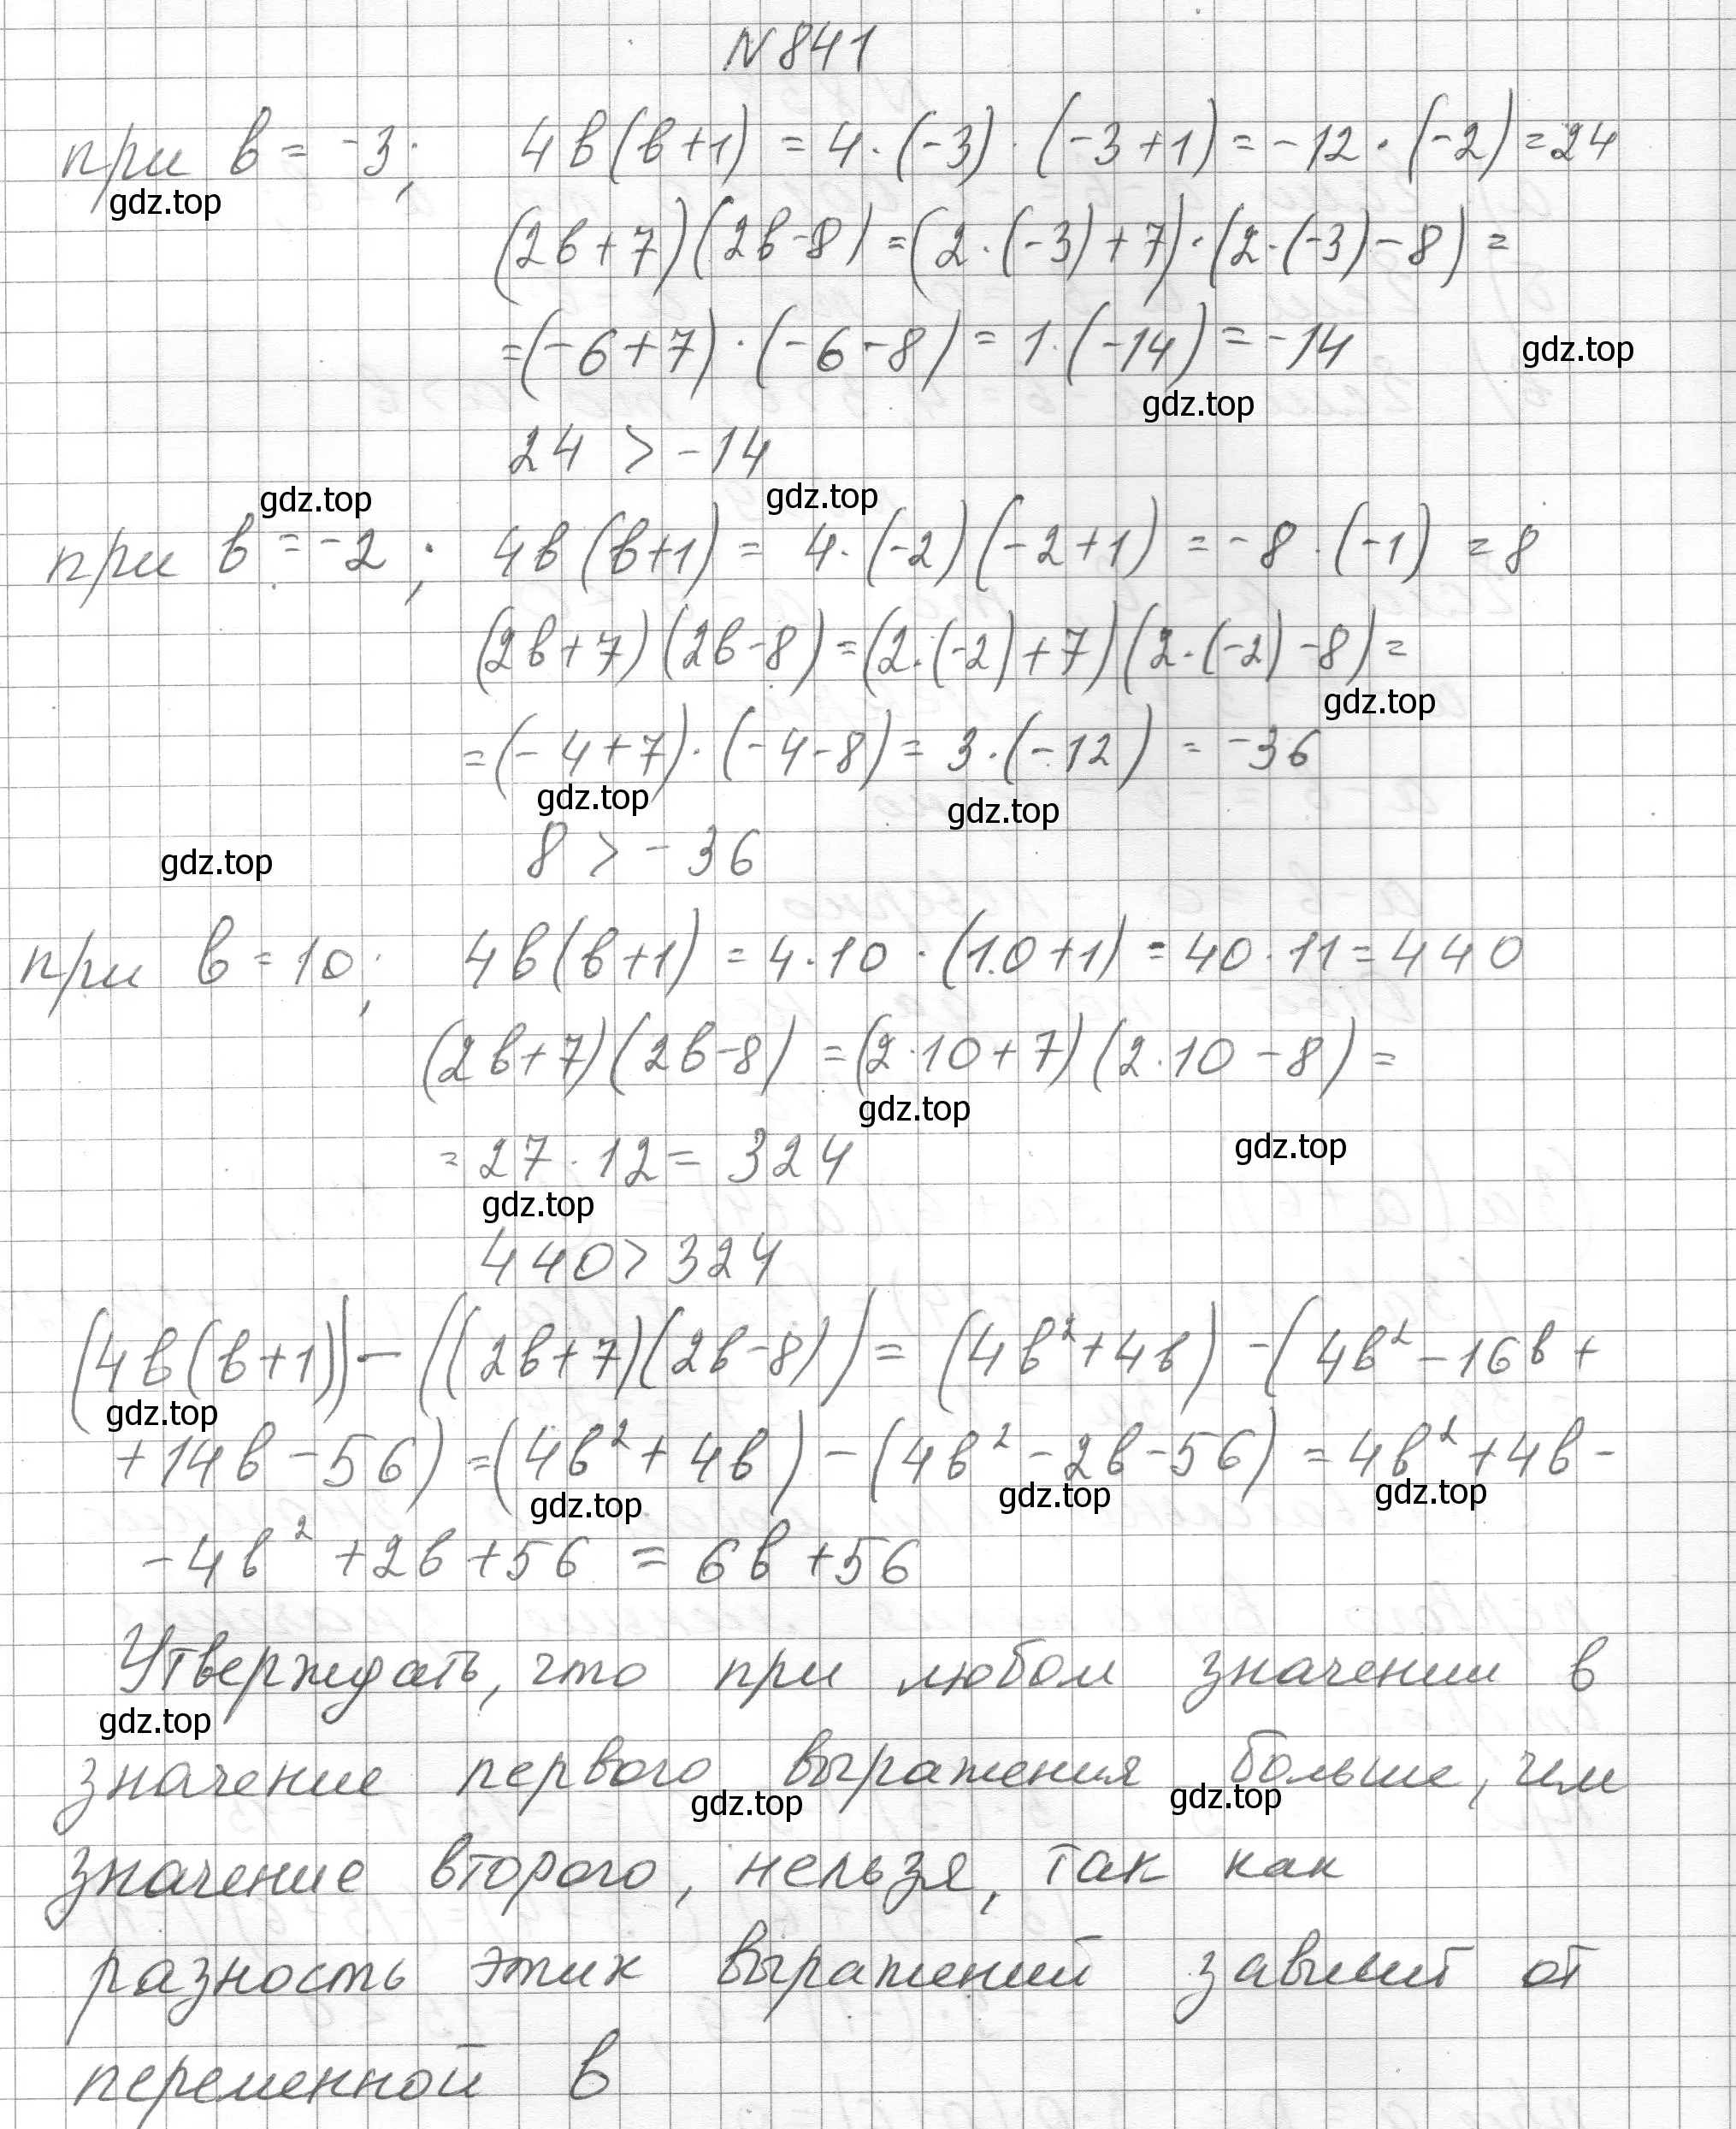 N 841
при b = -3; 4b(b+1) = 4·(-3)·(-3+1) = -12·(-2) = 24
gdz.top
(2b+7)(2b-8) = (2·(-3)+7)·(2·(-3)-8) =
=(-6+7)·(-6-8) = 1·(-14) = -14
gdz.top
gdz.top
24 > -14
gdz.top
gdz.top
при b = -2; 4b(b+1) = 4·(-2)(-2+1) = -8·(-1) = 8
(2b+7)(2b-8) = (2·(-2)+7)(2·(-2)-8) =
gdz.top
=(-4+7)·(-4-8) = 3·(-12) = -36
gdz.top
gdz.top
8 > -36
gdz.top
при b = 10; 4b(b+1) = 4·10·(10+1) = 40·11 = 440
(2b+7)(2b-8) = (2·10+7)(2·10-8) =
gdz.top
gdz.top
= 27·12 = 324
gdz.top
440 > 324
(4b(b+1)) - ((2b+7)(2b-8)) = (4b²+4b) - (4b²-16b+
gdz.top
+14b-56) = (4b²+4b) - (4b²-2b-56) = 4b²+4b-
gdz.top
gdz.top
gdz.top
-4b²+2b+56 = 6b+56
Утверждать, что при любом значении b
gdz.top
значение первого выражения больше, чем
gdz.top
gdz.top
значение второго, нельзя, так как
разность этих выражений зависит от
переменной b